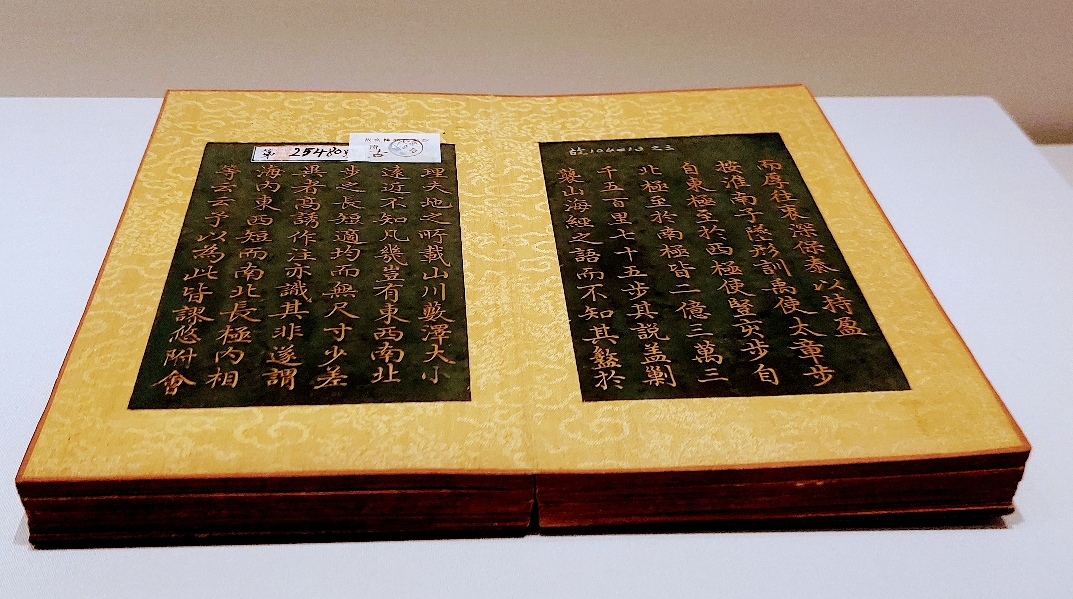 而厚往衷深保泰以持盈
按淮南子墬形訓禹使大章步
自東極至於西極使豎亥步自
北極至於南極皆二億三萬三
千五百里七十五步其說蓋剿
襲山海經之語而不知其盭於
理夫地之所載山川藪澤大小
遠近不知凡幾豈有東西南北
步之長短適均而無尺寸少差
異者高誘作注亦識其非遂謂
海內東西短而南北長極內相
等云云予以為此皆謬悠附會
第 25480